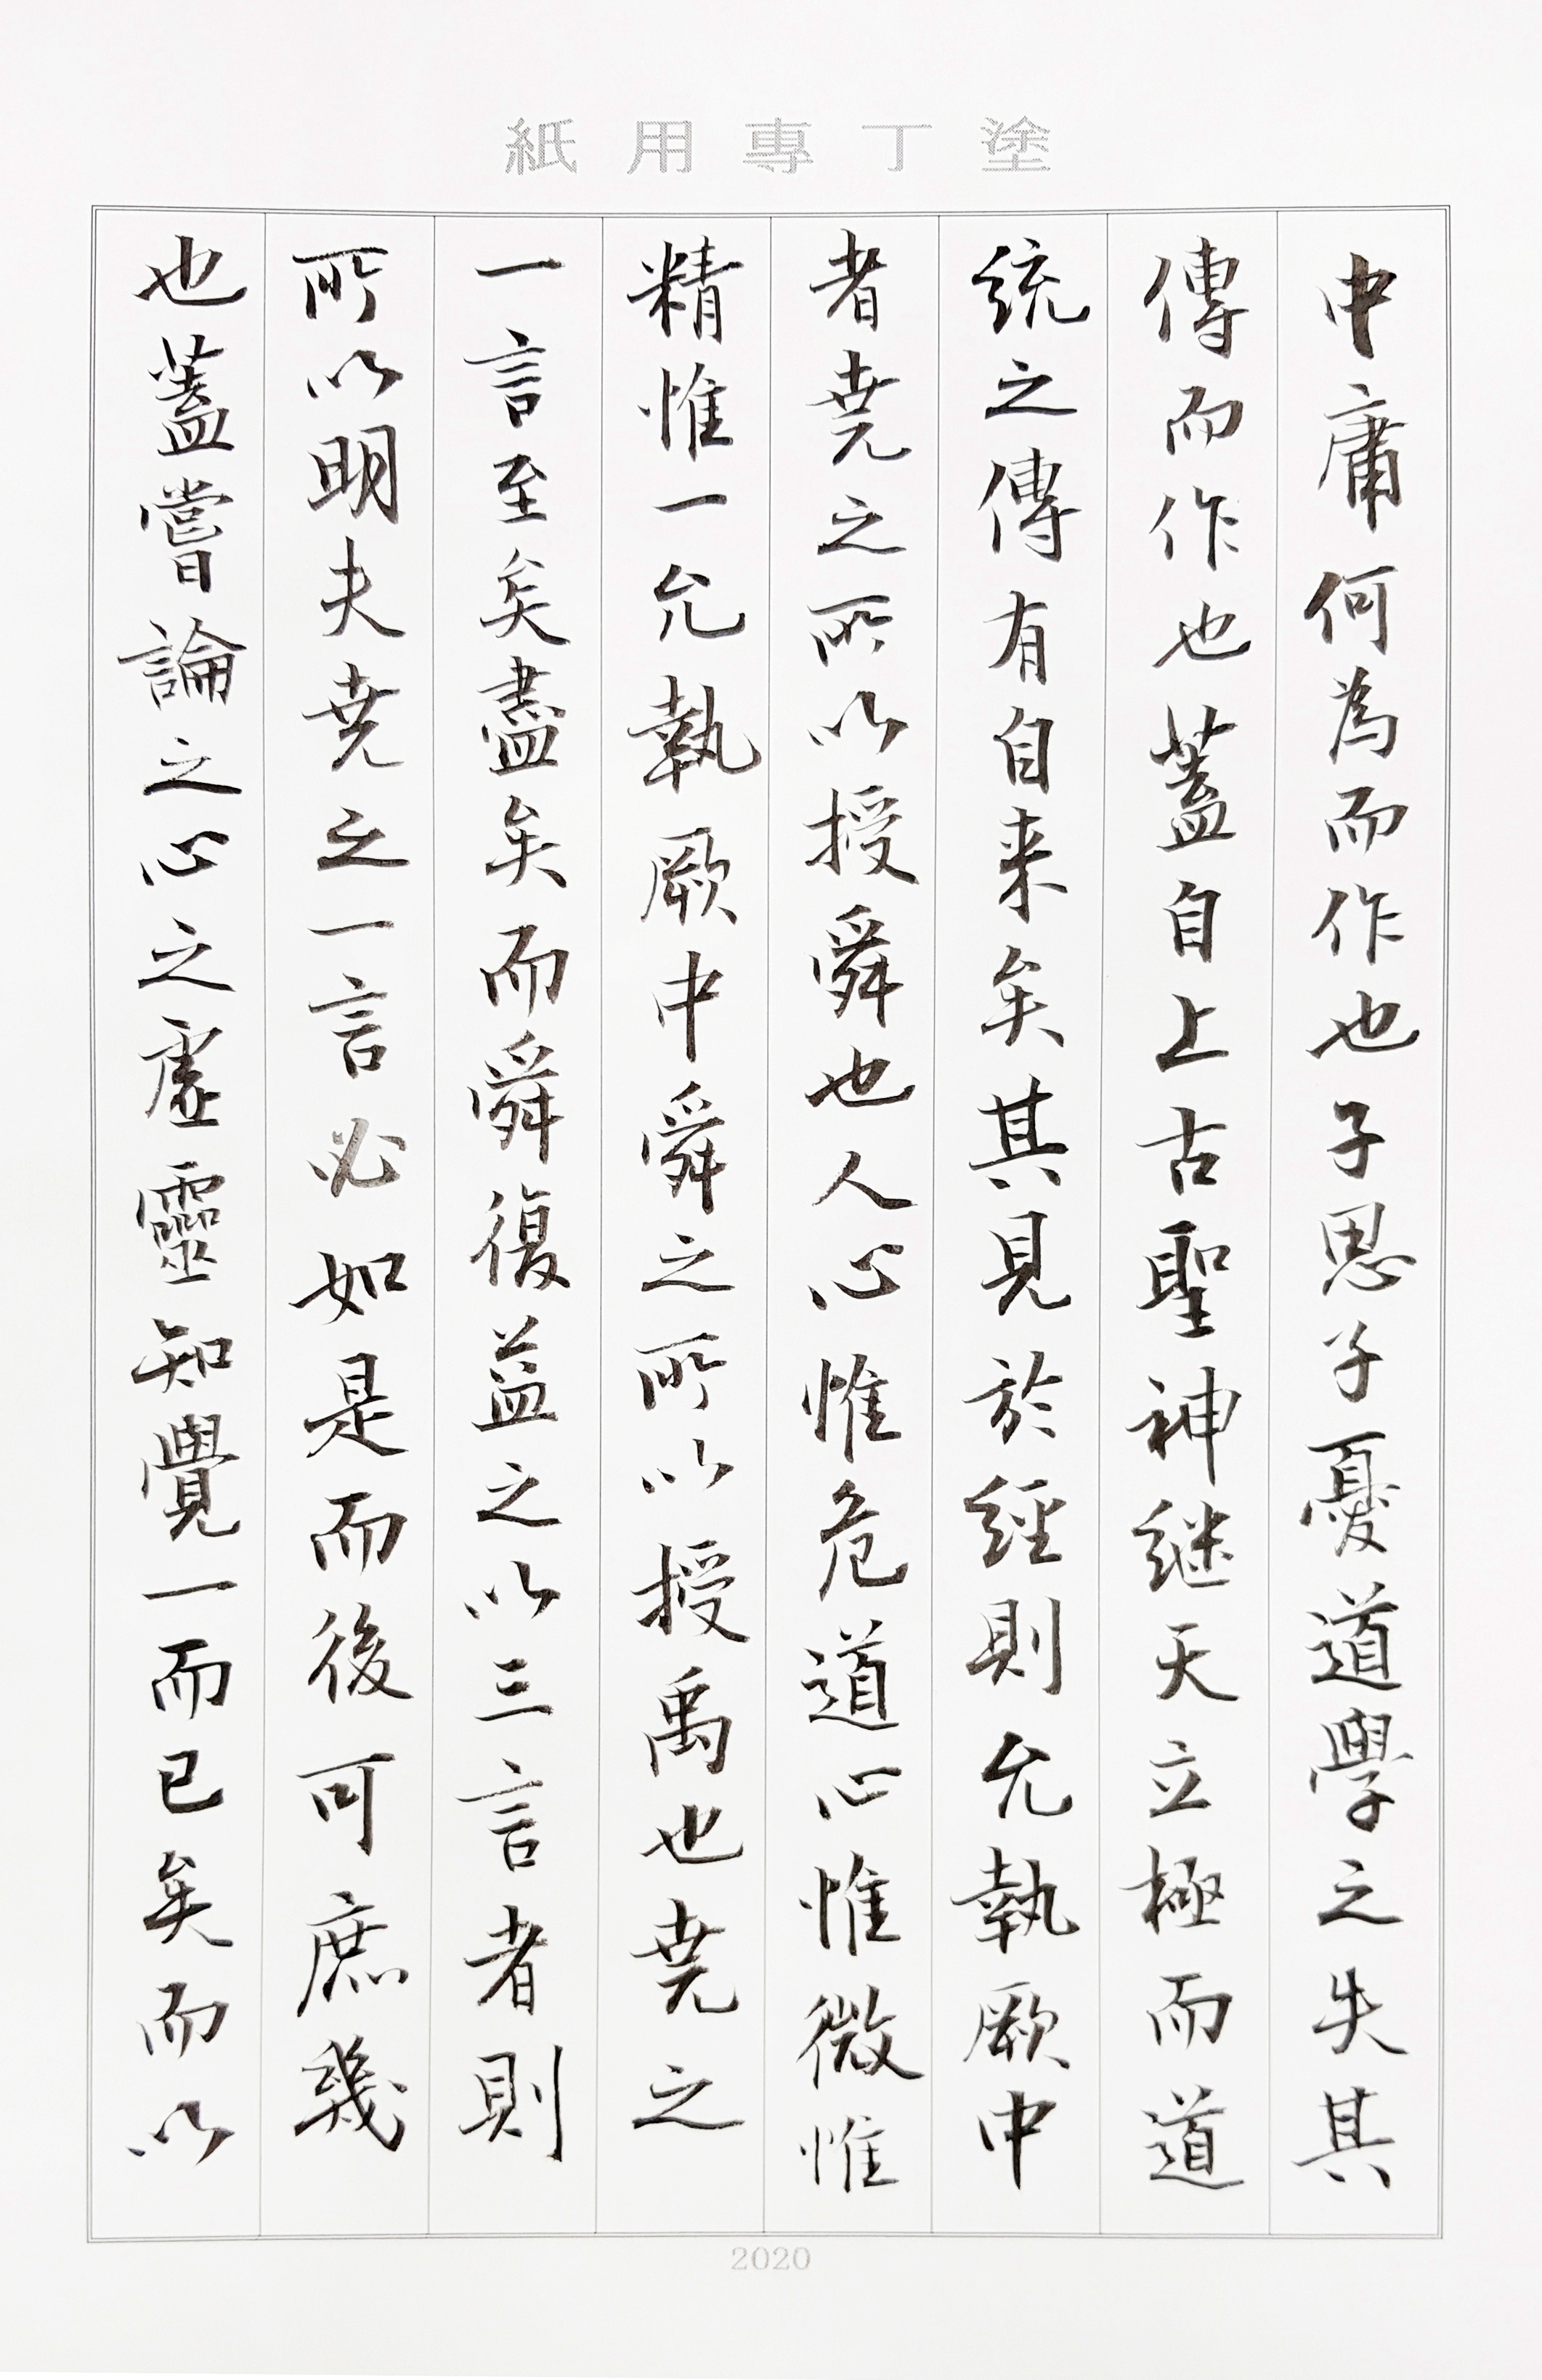 塗丁專用紙
中庸何為而作也子思子憂道學之失其
傳而作也蓋自上古聖神継天立極而道
統之傳有自来矣其見於經則允執厥中
者尭之所以授舜也人心惟危道心惟微惟
精惟一允執厥中舜之所以授禹也尭之
一言至矣盡矣而舜復益之以三言者則
所以明夫尭之一言必如是而後可庶幾
也蓋嘗論之心之虛靈知覺一而已矣而以
2020